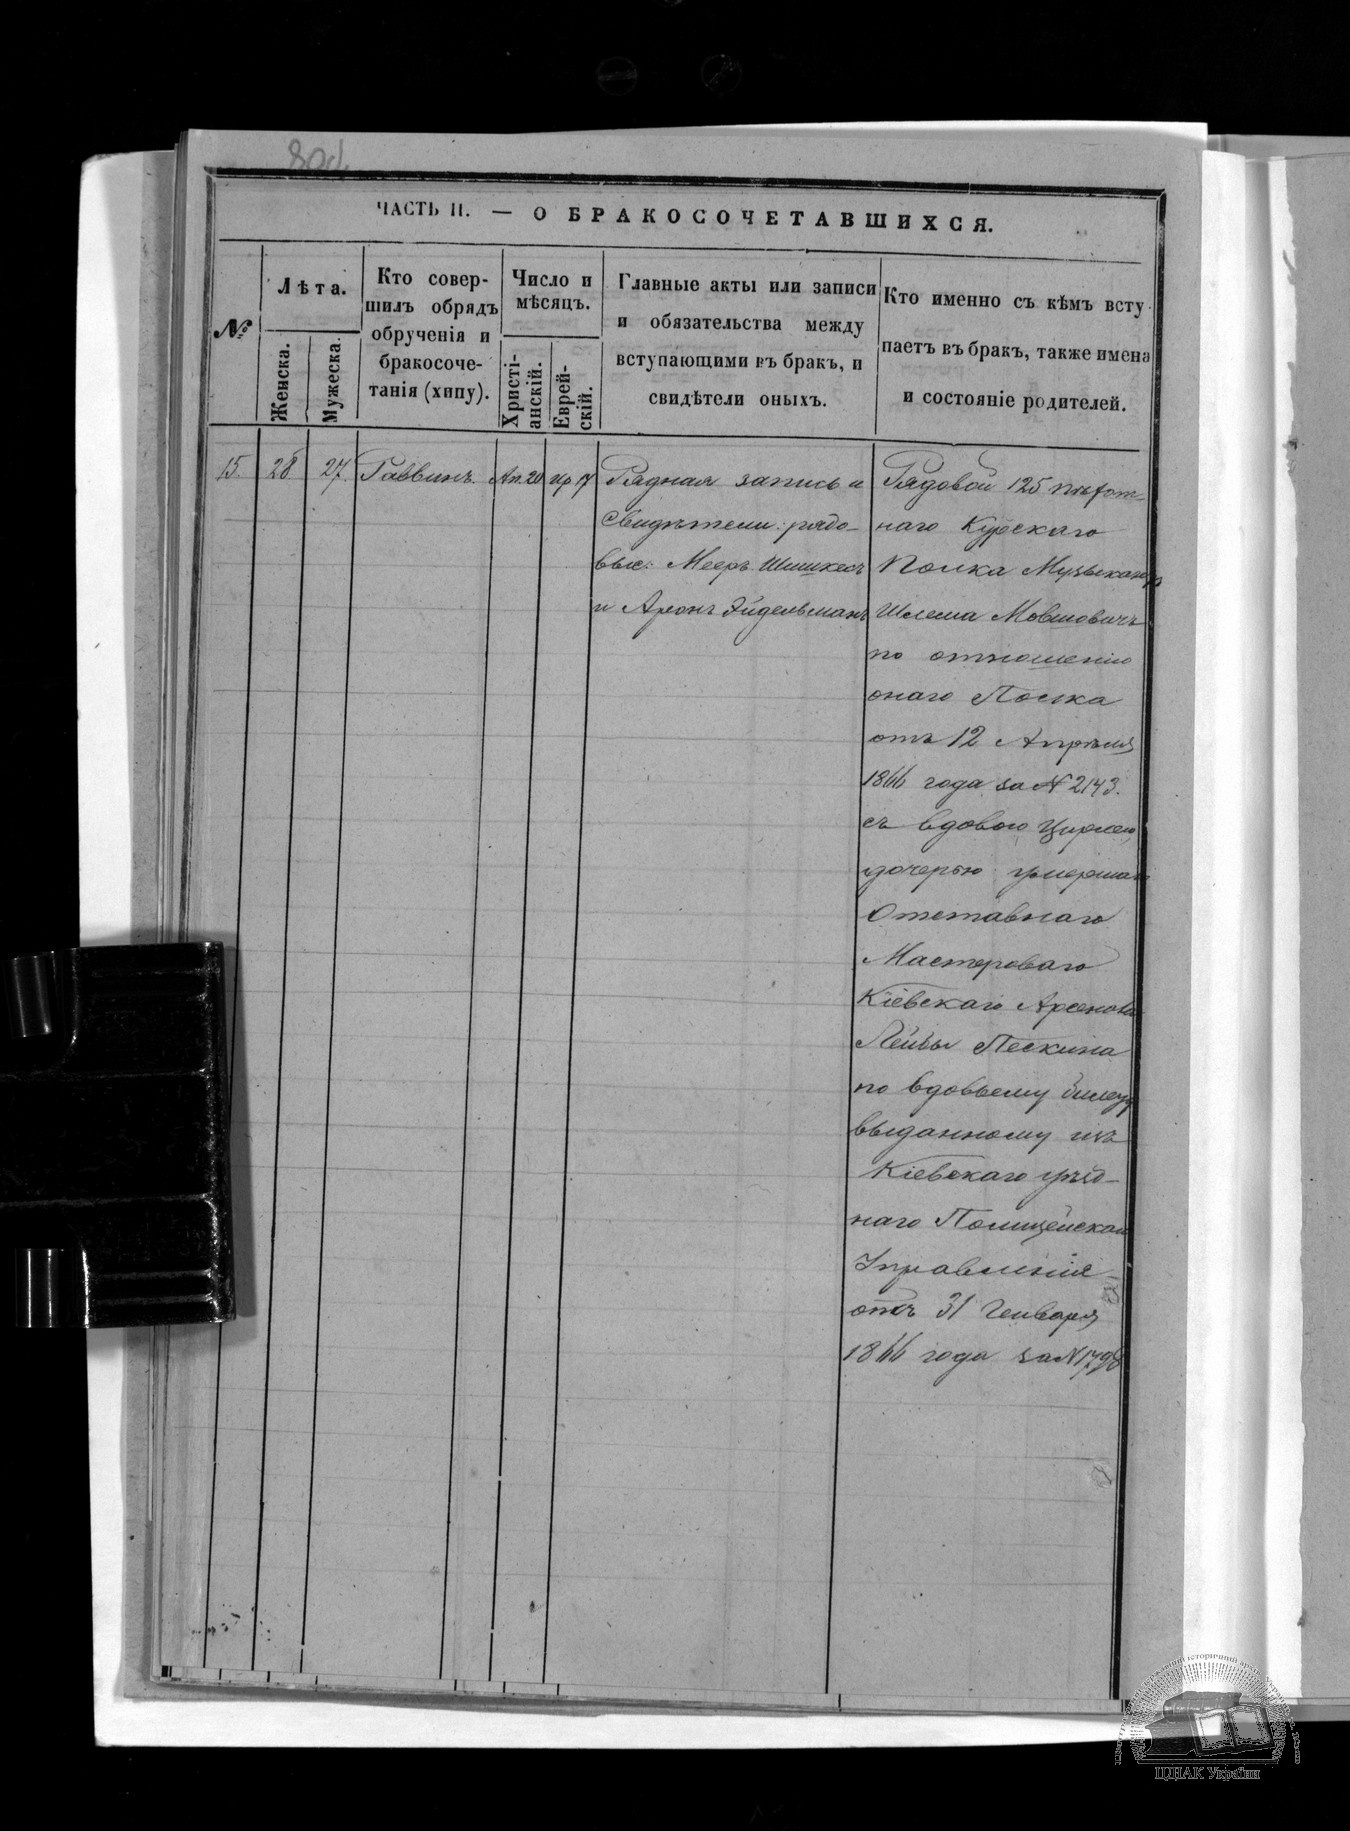 ЧАСТЬ II. — О БРАКОСОЧЕТАВШИХСЯ.
№
Лѣта.
Женска.
Мужеска.
Кто совер-
шилъ обрядъ
обрученія и
бракосоче-
танія (хупу).
Число и
мѣсяцъ.
Христі-
анскій.
Еврей-
скій.
Главные акты или записи
и обязательства между
вступающими въ бракъ, и
свидѣтели оныхъ.
Кто именно съ кѣмъ всту
паетъ въ бракъ, также имена
и состояніе родителей.
15.
28
27
Раввинъ
Ап. 20
Ир 17
Рядная запись и
свидѣтели: рядо-
вые: Мееръ Шишкесъ
и Аронъ Эйдельманъ
Рядовой 125 пѣхот-
наго Курскаго
Полка Музыкантъ
Шлема Мовшовичъ
по отношенію
онаго Полка
отъ 12 Апрѣля
1866 года за № 2143.
съ вдовою Цирлею
дочерью умершаго
Отставнаго
Мастероваго
Кіевскаго Арсенала
Лейбы Пескина
по вдовьему билету
выданному изъ
Кіевскаго уѣзд-
наго Полицейскаго
Управленія
отъ 31 Генваря
1866 года за № 1798
ЦДІАК України